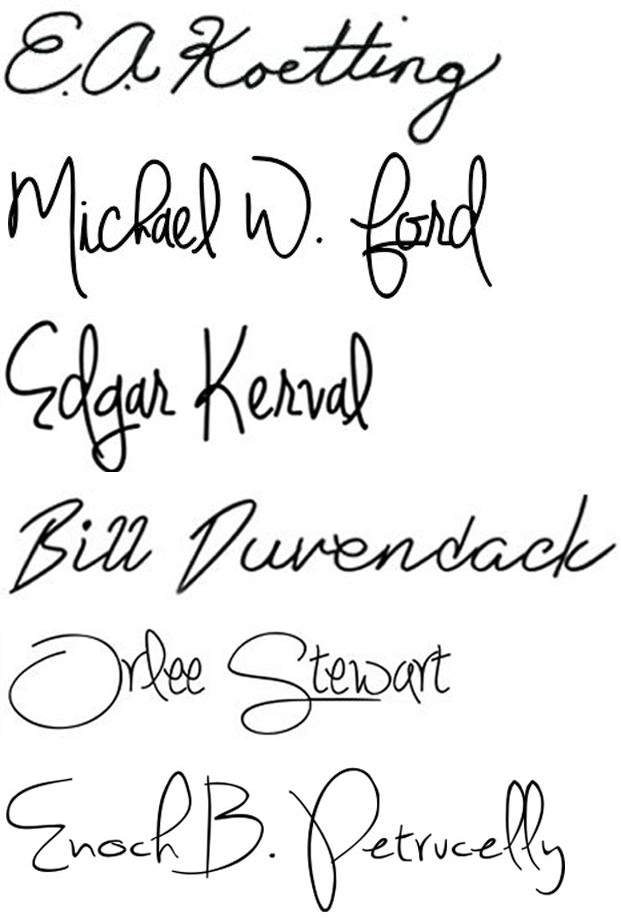 E.A. Koetting
Michael W. Ford
Edgar Kerval
Bill Duvendack
Orlee Stewart
Enoch B. Petrucelly